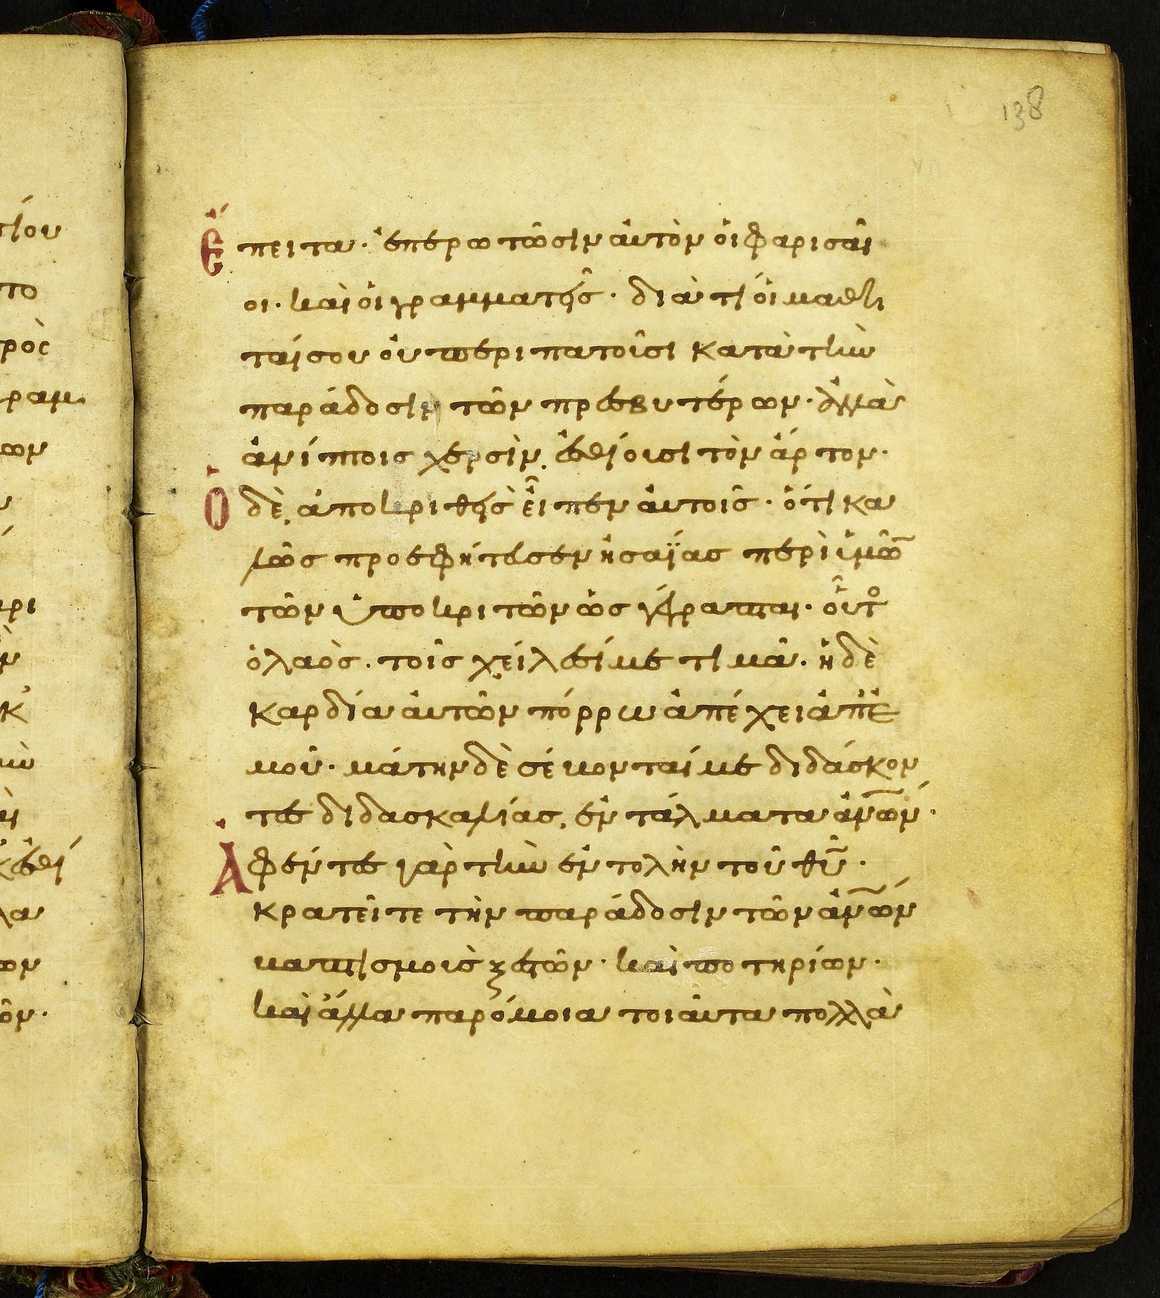 138
τίου
Ἔπειτα· ἐπερωτῶσιν ἀυτὸν ὁι φαρισᾶι
οι· καὶ ὁι γραμματεῖς· διὰ τί ὁι μαθη
το
ταί σου ὀυ περιπατοῦσι κατὰ τὴν
ρὸς
παράδοσιν τῶν πρεσβυτέρων· ἀλλὰ
ραμ
ἀνίπτοις χερσὶν, ἐσθίουσι τὸν ἄρτον·
ων
Ὁ δὲ, ἀποκριθεὶς εἶπεν ἀυτοῖς· ὅτι κα
λῶς προεφήτευσεν ἡσαΐας περὶ ὑμῶ
τῶν ὑποκριτῶν ὡς γέγραπται· οὗτο
κρι
ὁ λαὸς· τοῖς χείλεσί με τιμᾶ· ἡ δὲ
καρδία ἀυτῶν πόρρω ἀπέχει ἀπ ἐ
μοῦ· μάτην δὲ σέβονταί με διδάσκον
τες διδασκαλίας, ἐντάλματα ἀν̅ων·
Ἀφέντες γὰρ τὴν ἐντολὴν τοῦ θυ̅·
κἐσθί
κρατεῖτε τὴν παράδοσιν τῶν ἀν̅ων
λα
βαπτισμοὺς ξεστῶν· καὶ ποτηρίων·
ων
καὶ ἄλλα παρόμοια τοιᾶυτα πολλὰ
ῶν·